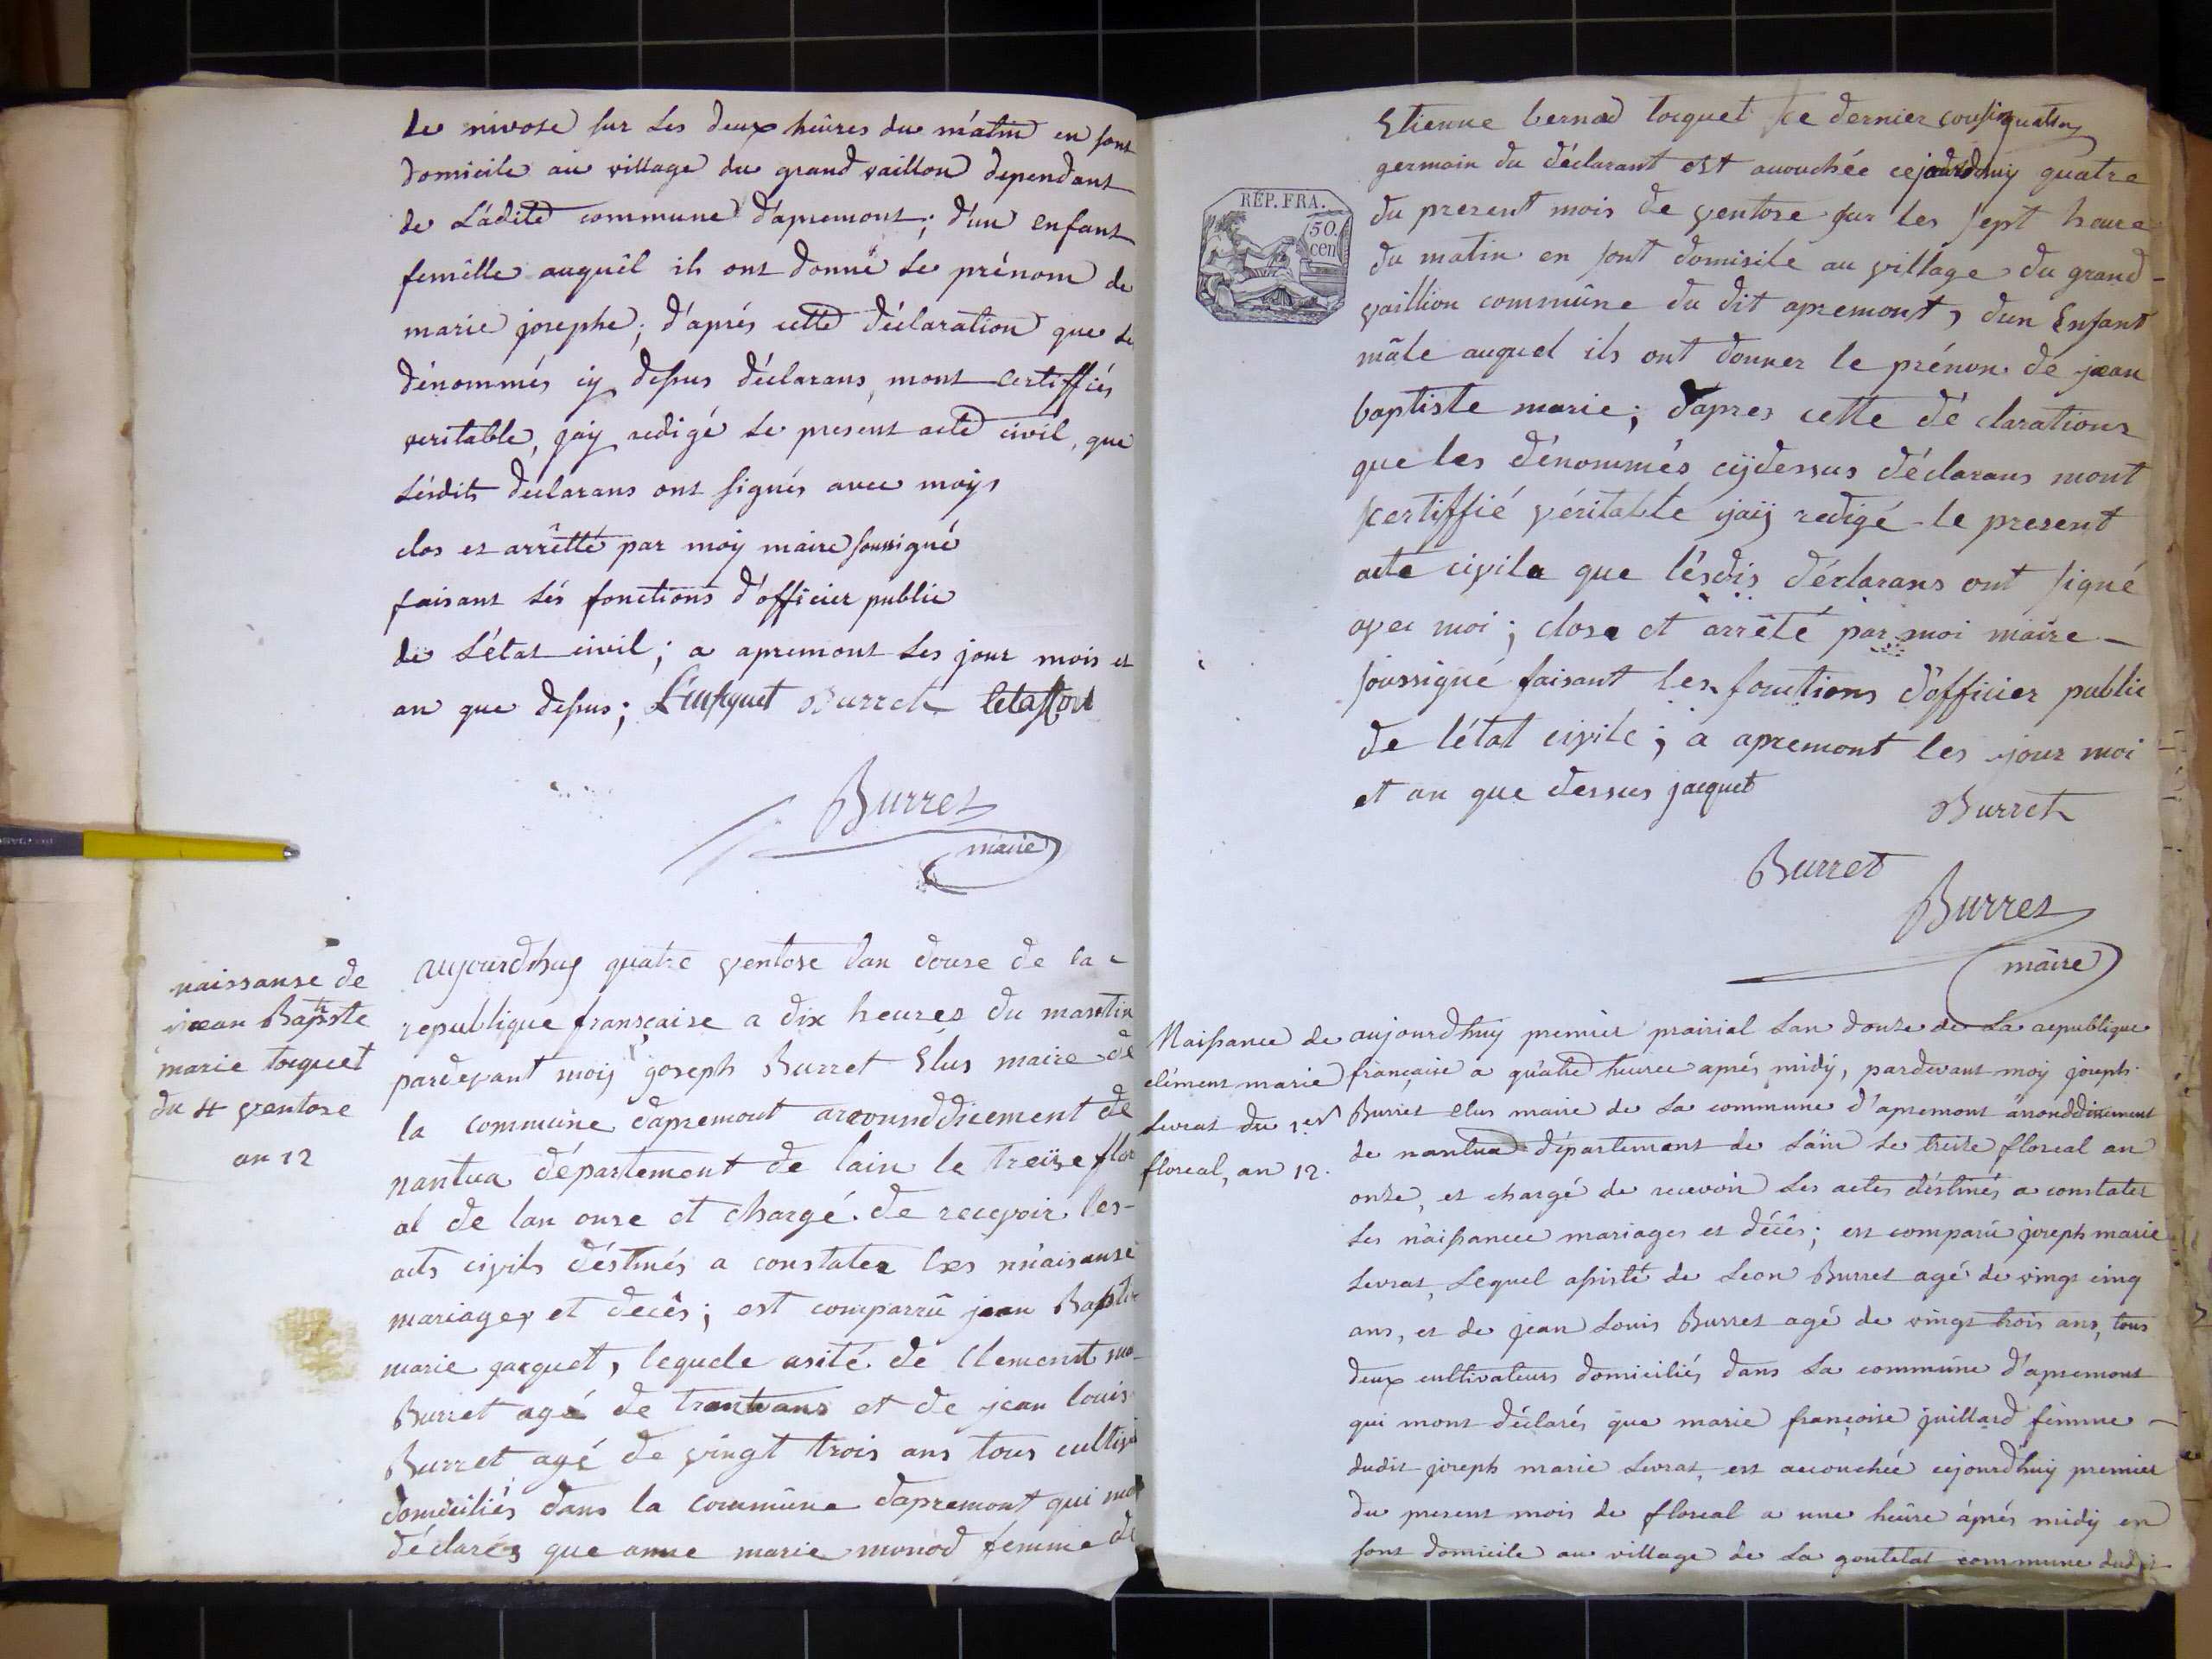 de nivose sur les deux heûres du mátin en sont
domicile au village du grand vaillon dependant
de Ládite commune d'apremont; d'un enfant
femêlle auquêl ils ont donné le prénom de
marie josephe; d'aprés cette déclaration que le
dénommés cy dessus déclarans, mont certiffiés
veritable, jáy redigé le présent acte civil, que
Lésdits déclarans ont signés avec moÿ;
clos et arrêtté par moÿ maire soussigné
faisant lés fonctions d'officier public
de L'état civil; a apremont les jour mois et
an que dessus; Burret
Burret
maire
naissanse de
jean Baptiste
marie jocquet
du 4 ventose
an 12
aujourdhuy quatre ventose lan douze de la
republique française a dix heures du mattin
pardevant moij joseph Burret Elus maire de
la commune dapremont arrounddicement de
nantua département de lain le treize flor
al de lan onse et chargé de recevoir les
acts civils déstinés a constater les náisanse
mariages et decês; est comparrû jean Baptis
marie jacquet, lequele asité de Clement ma
Burret agé de trantvans et de jean louis
Burret agé de vingt trois ans tous cultiva
domiciliés dans la commûne dapremont qui mo
déclarés que anne marie monod femme de
Etienne bernad jocquet ce dernier cousin
germain du déclarant est acouchée cejourdhuy quatre
du present mois de ventose sur les sept heure
RÉP. FRA.
50.
cen
du matin en sont domisile au village du grand-
vaillion commûne du dit apremont, dun Enfant
mâle auquel ils ont donner le prénon de jean
baptiste marie; dapres cette dé clarations
que les dénommés cijdessus déclarans mont
certiffié véritable jaij redigé le present
acte civile que lésdis déclarans ont signé
avec moi; close et arrêté par moi maire
soussigné faisant les fonctions d'officier public
de létat civile; a apremont les jour moi
et an que dessus jacquet
Burret
Burret
Burret
mâire
Naissance de
clément marie
Levrat du 1er
floreal, an 12.
aujourdhuy premier prairial Lan douze de La republique
française a quátre heures aprés midÿ, pardevant moÿ joseph
Burret elus maire de La commune d'apremont arronddissement
de nantua département de Láin le treize floreal an
onze, et chargé de recevoir les actes déstinés a constater
les náissances mariages et décês; est comparû joseph marie
Levrat, Lequel assisté de Leon Burret agé de vingt cinq
ans, et de jean Louis Burret agé de vingt trois ans, tous
deux cultivateurs domiciliés dans La commune d'apremont
qui mont déclarés que marie françoise juillard femme
dudit joseph marie Levrat, est accouchée cejourdhuy premier
du present mois de floreal a une heûre áprés midÿ en
sont domicile au village de La goutelat commune dudit